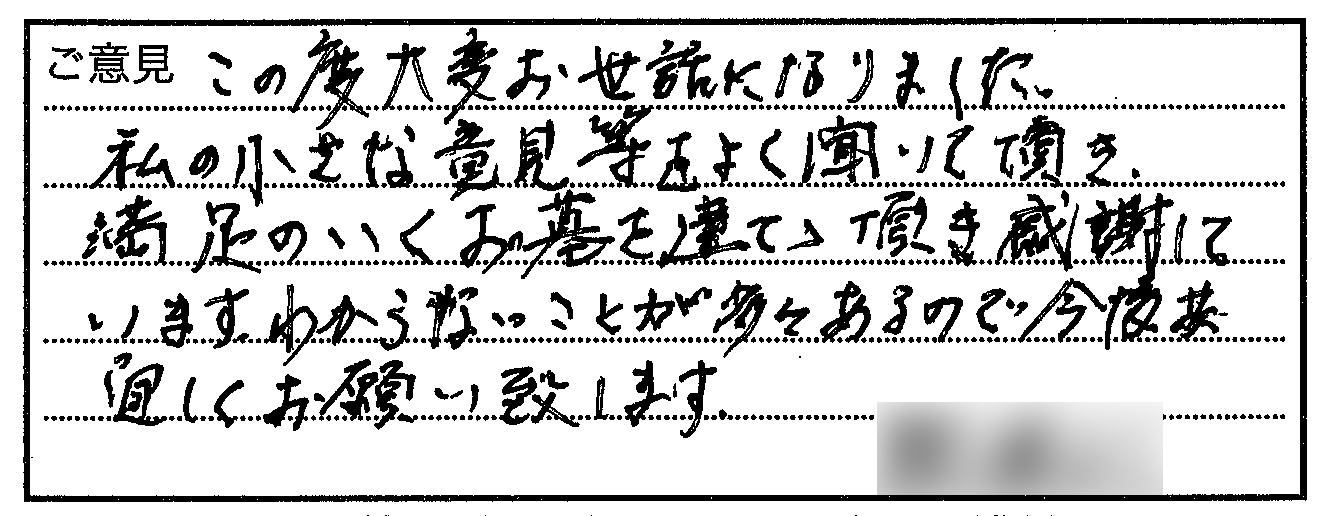 ご意見 この度大変お世話になりました。
私の小さな意見等もよく聞いて頂き、
満足のいくお墓を建てゝ頂き感謝して
います。わからないことが多々あるので今後共
宜しくお願い致します。